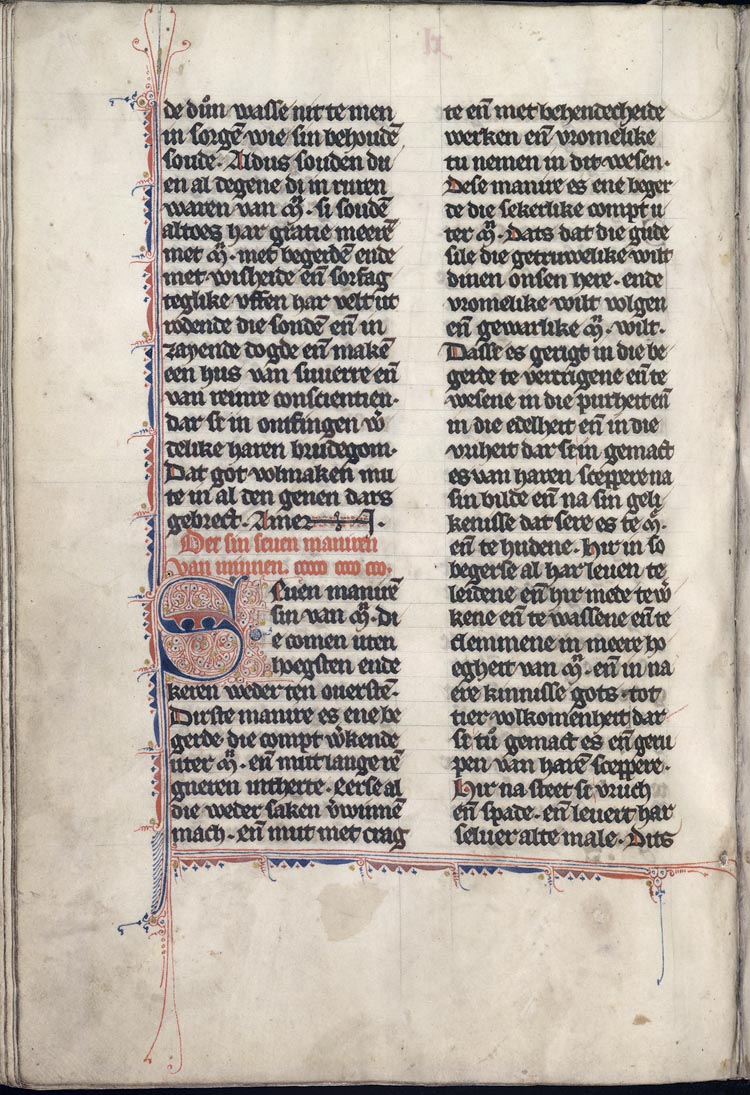 de dūn wasse nit te men
in sorgē wie sin behoudē
soude. Aldus souden du
en al degene di in ruren
waren van m̄. si soudē
altoes har gratie meerē
met m̄. met begerdē ende
met wisheide eñ sorfag
teglike uffen har velt ut
rodende die sondē eñ in
zayende dogde eñ makē
een hus van suuerre eñ
van reinre conscientien.
dar si in ontfingen w̄
delike haren brudegom.
Dat got volmaken mu
te in al den genen dars
gebrect. Amen.
Det sin seuen maniren
van minnen.
Seuen manirē
sin van m̄. di
e comen uten
hoegsten ende
keren weder ten ouerstē.
Dirste manire es ene be
gerde. die compt w̄kende
uter m̄. eñ mut lange rē
gneren int herte. eerse al
die weder saken v̄winnē
mach. eñ mut met crag
te eñ met behendecheide
werken eñ vromelike
tu nemen in dit wesen.
Dese manire es ene beger
de die sekerlike compt u
ter m̄. Dats dat die gude
sile die getruwelike wilt
dinen onsen here. ende
vromelike wilt volgen
eñ gewarlike m̄. wilt.
Dasse es gerigt in die be
gerde te vercrigene eñ te
wesene in die purheit eñ
in die edelheit eñ in die
vriheit dar si in gemact
es van haren sceppere na
sin bilde eñ na sin geli
kenisse dat sere es te m̄.
eñ te hudene. Hir in so
begerse al har leuen te
leidene eñ hir mede te w̄
kene eñ te wassene eñ te
clemmene in meere ho
egheit van m̄. eñ in na
ere kinnisse gots. tot
tier volkomenheit dar
si tū gemact es eñ geru
pen van harē sceppere.
Hir na steet si vruch
eñ spade. eñ leuert har
seluer alte male. Dits